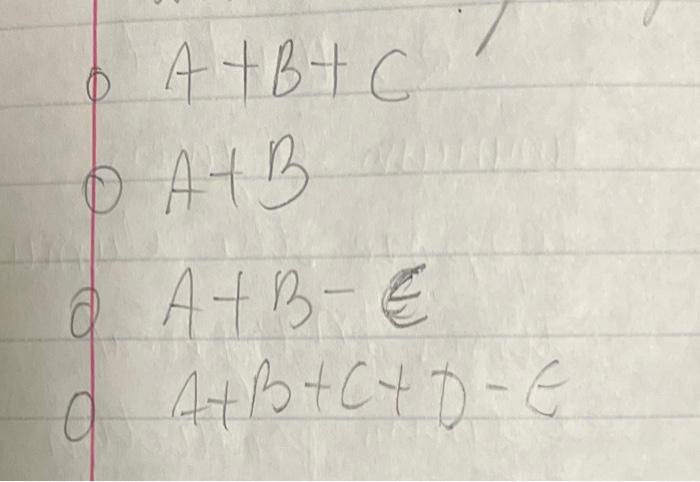 A+B+C
A+B
A+B-E
A+B+C+D-E